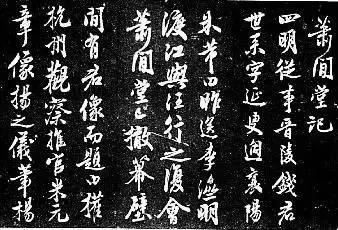 蕭閒堂記
四明從事晉陵錢君
世京字延叟過襄陽
米芾曰昨送李澥明
渡江與汪行之復會
蕭閒堂已撤幕壁
間有君像而題曰權
杭州觀察推官米元
章像揚之儀華楊